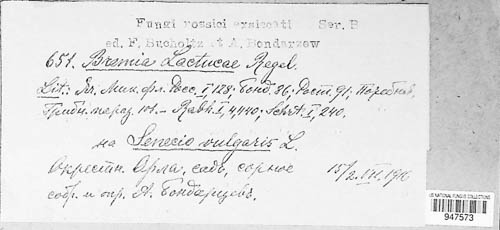 Fungi rossici exsiccati Ser. B
ed. F. Bucholtz et A. Bondarzew
651. Bremia Lactucae Regel.
Lit.: Мик. фл. Росс. I, 128; Бонд. 86; Рост. 91;
Грибн. параз. 101. - Rabh. I, 4, 440; Schrt. I, 240.
на Senecio vulgaris L.
Окрестн. Орла, садъ, сорное 15/2. VII. 1916
собр. и опр. А. Бондарцевъ.
US NATIONAL FUNGUS COLLECTIONS
947573